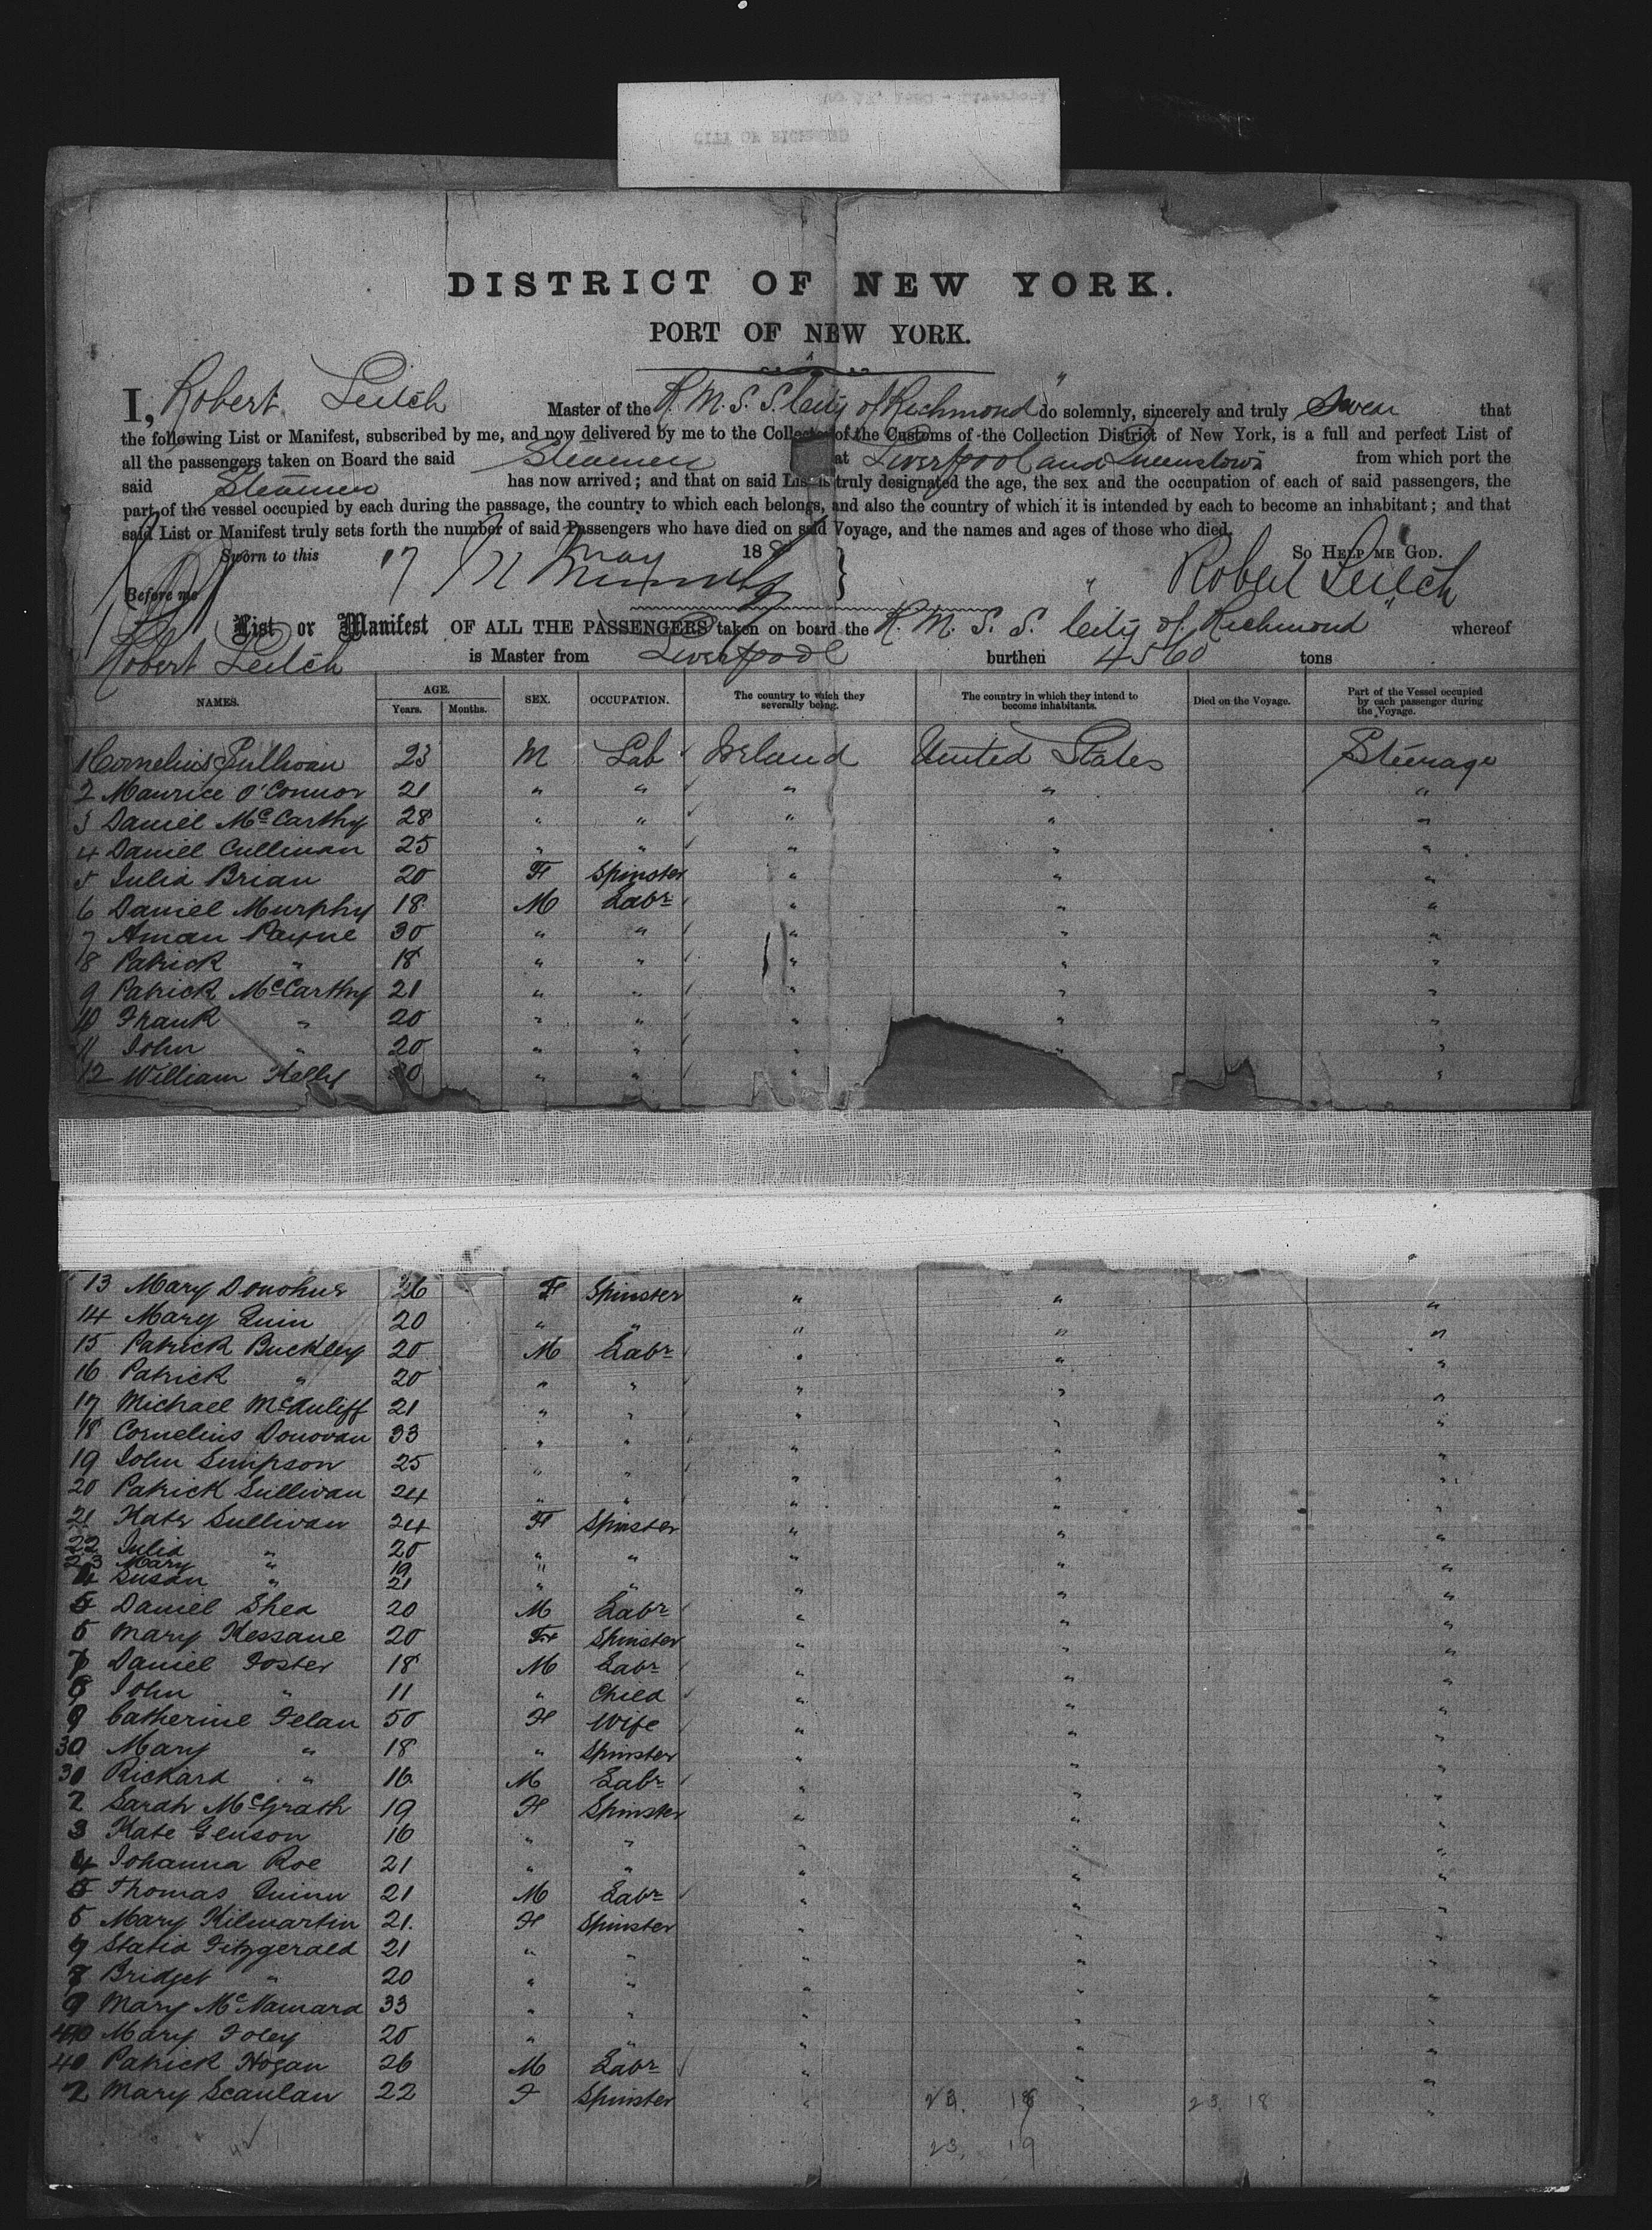 DISTRICT OF NEW YORK.
PORT OF NEW YORK.
I, Robert Leitch Master of the R. M. S. S. City of Richmond do solemnly, sincerely and truly Swear that
the following List or Manifest, subscribed by me, and now delivered by me to the Collector of the Customs of the Collection District of New York, is a full and perfect List of
all the passengers taken on Board the said Steamer at Liverpool and Queenstown from which port the
said Steamer has now arrived; and that on said List is truly designated the age, the sex and the occupation of each of said passengers, the
part of the vessel occupied by each during the passage, the country to which each belongs, and also the country of which it is intended by each to become an inhabitant; and that
said List or Manifest truly sets forth the number of said Passengers who have died on said Voyage, and the names and ages of those who died.
Sworn to this 17 May 188 So Help me God.
Before me Robert Leitch
List or Manifest OF ALL THE PASSENGERS taken on board the R. M. S. S. City of Richmond whereof
Robert Leitch is Master from Liverpool burthen 4560 tons
NAMES. AGE. Years. Months. SEX. OCCUPATION. The country to which they severally being. The country in which they intend to become inhabitants. Died on the Voyage. Part of the Vessel occupied by each passenger during the Voyage.
1 Cornelius Sullivan 23 M Lab Ireland United States Steerage
2 Maurice O'Connor 21 " " " " "
3 Daniel McCarthy 28 " " " " "
4 Daniel Cullinan 25 " " " " "
5 Julia Brian 20 F Spinster " " "
6 Daniel Murphy 18 M Labr " " "
7 Aman Payne 30 " " " " "
8 Patrick " 18 " " " " "
9 Patrick McCarthy 21 " " " " "
10 Frank " 20 " " " " "
11 John " 20 " " " " "
12 William Kelly " " " "
13 Mary Donohue 26 F Spinster " " "
14 Mary Quin 20 " " " " "
15 Patrick Buckley 20 M Labr " " "
16 Patrick " 20 " " " " "
17 Michael McAuliff 21 " " " " "
18 Cornelius Donovan 33 " " " " "
19 John Simpson 25 " " " " "
20 Patrick Sullivan 24 " " " " "
21 Kate Sullivan 24 F Spinster " " "
22 Julia " 20 " " " " "
23 Mary " 19 " " " "
4 Susan " 21 " " " " "
5 Daniel Shea 20 M Labr " " "
Mary Kessane 20 F Spinster " " "
7 Daniel Foster 18 M Labr " " "
8 John " 11 " Child " " "
9 Catherine Felan 50 F Wife " " "
30 Mary " 18 " Spinster " " "
30 Richard " 16 M Labr " " "
2 Sarah McGrath 19 F Spinster " " "
3 Kate Gleuson 16 " " " " "
4 Johanna Roe 21 " " " " "
5 Thomas Quinn 21 M Labr " " "
Mary Kilmartin 21 F Spinster " " "
Statia Fitzgerald 21 " " " " "
8 Bridget " 20 " " " " "
9 Mary McNamara 33 " " " " "
40 Mary Foley 20 " " " " "
40 Patrick Hogan 26 M Labr " " "
2 Mary Scanlan 22 F Spinster " " "
23. 18
23. 19